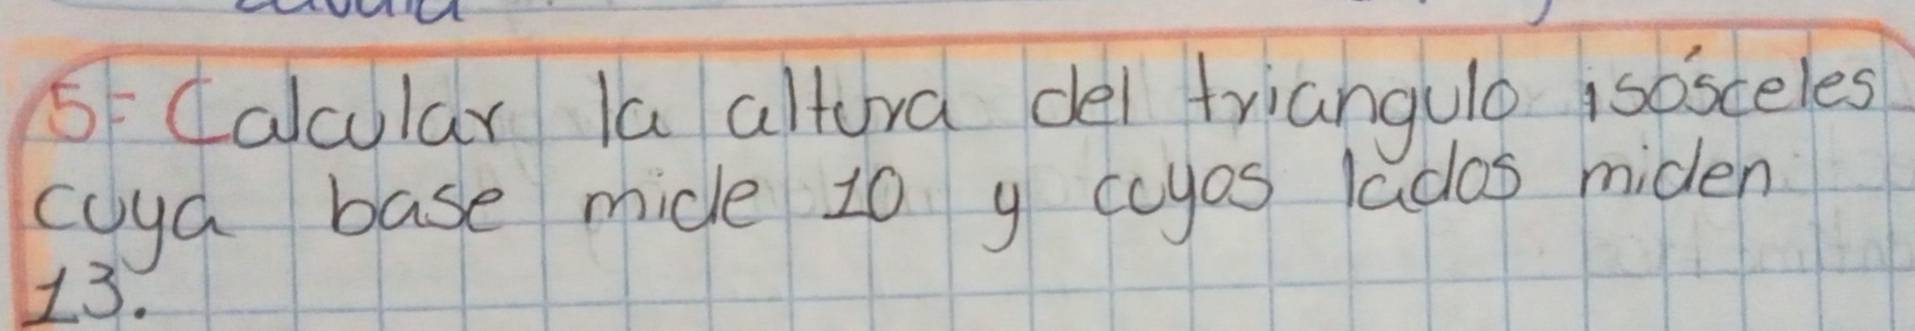 5= Calcular la altura del triangulo isósceles
cuya base mide 10 y cuyos lados miden
13.